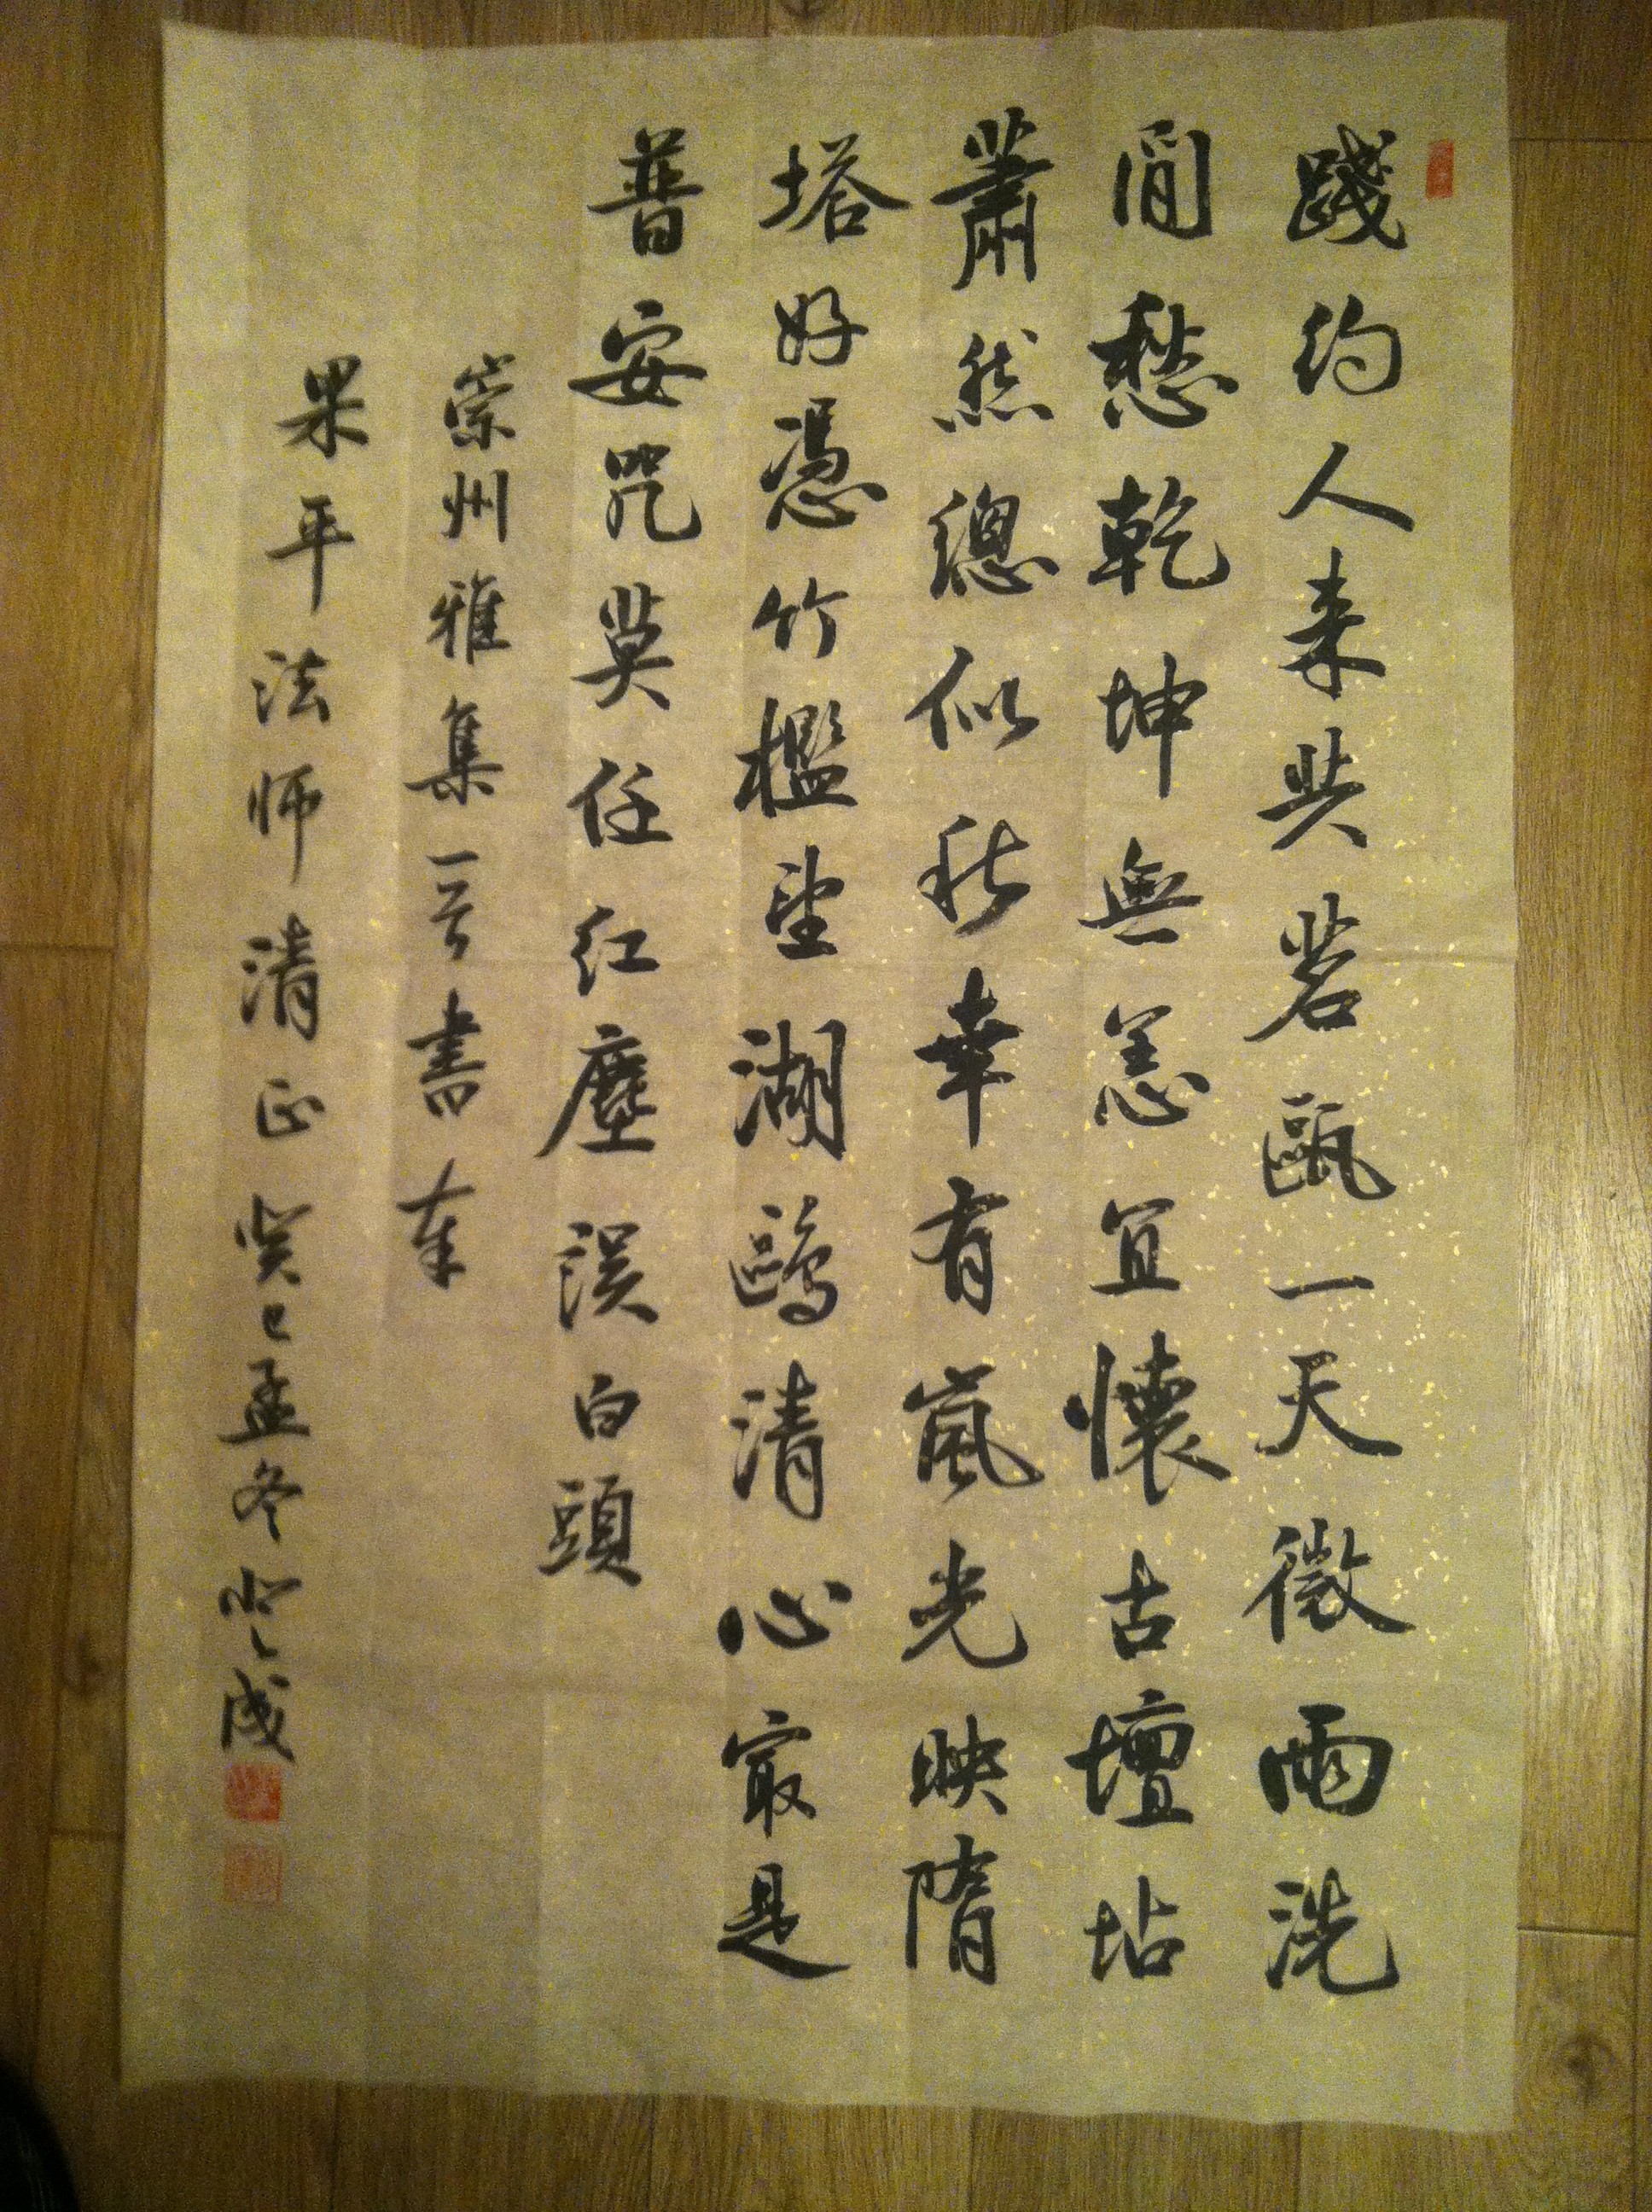 踐約人来共茗甌一天微雨洗
閒愁乾坤無恙宜懷古壇坫
蕭然總似秋幸有嵐光映隋
塔好憑竹檻望湖鷗清心最是
普安咒莫任紅塵誤白頭
崇州雅集一首書奉
果平法师清正癸巳孟冬